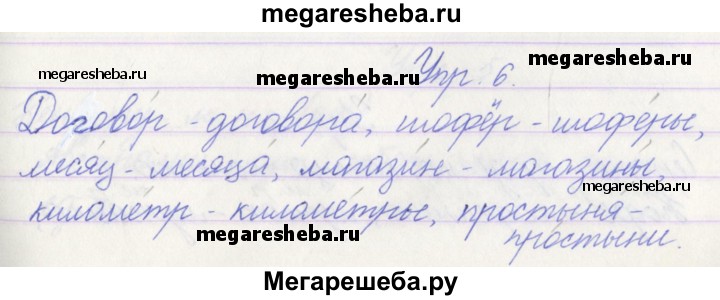 megaresheba.ru
Упр. 6.
megaresheba.ru
megaresheba.ru
Догово́р - договора́, шофёр - шофе́ры,
ме́сяц - месяца́, магази́н - магазины́,
megaresheba.ru
киломе́тр - киломе́тры, простыня́ -
megaresheba.ru
про́стыни.
Мегарешеба.ру